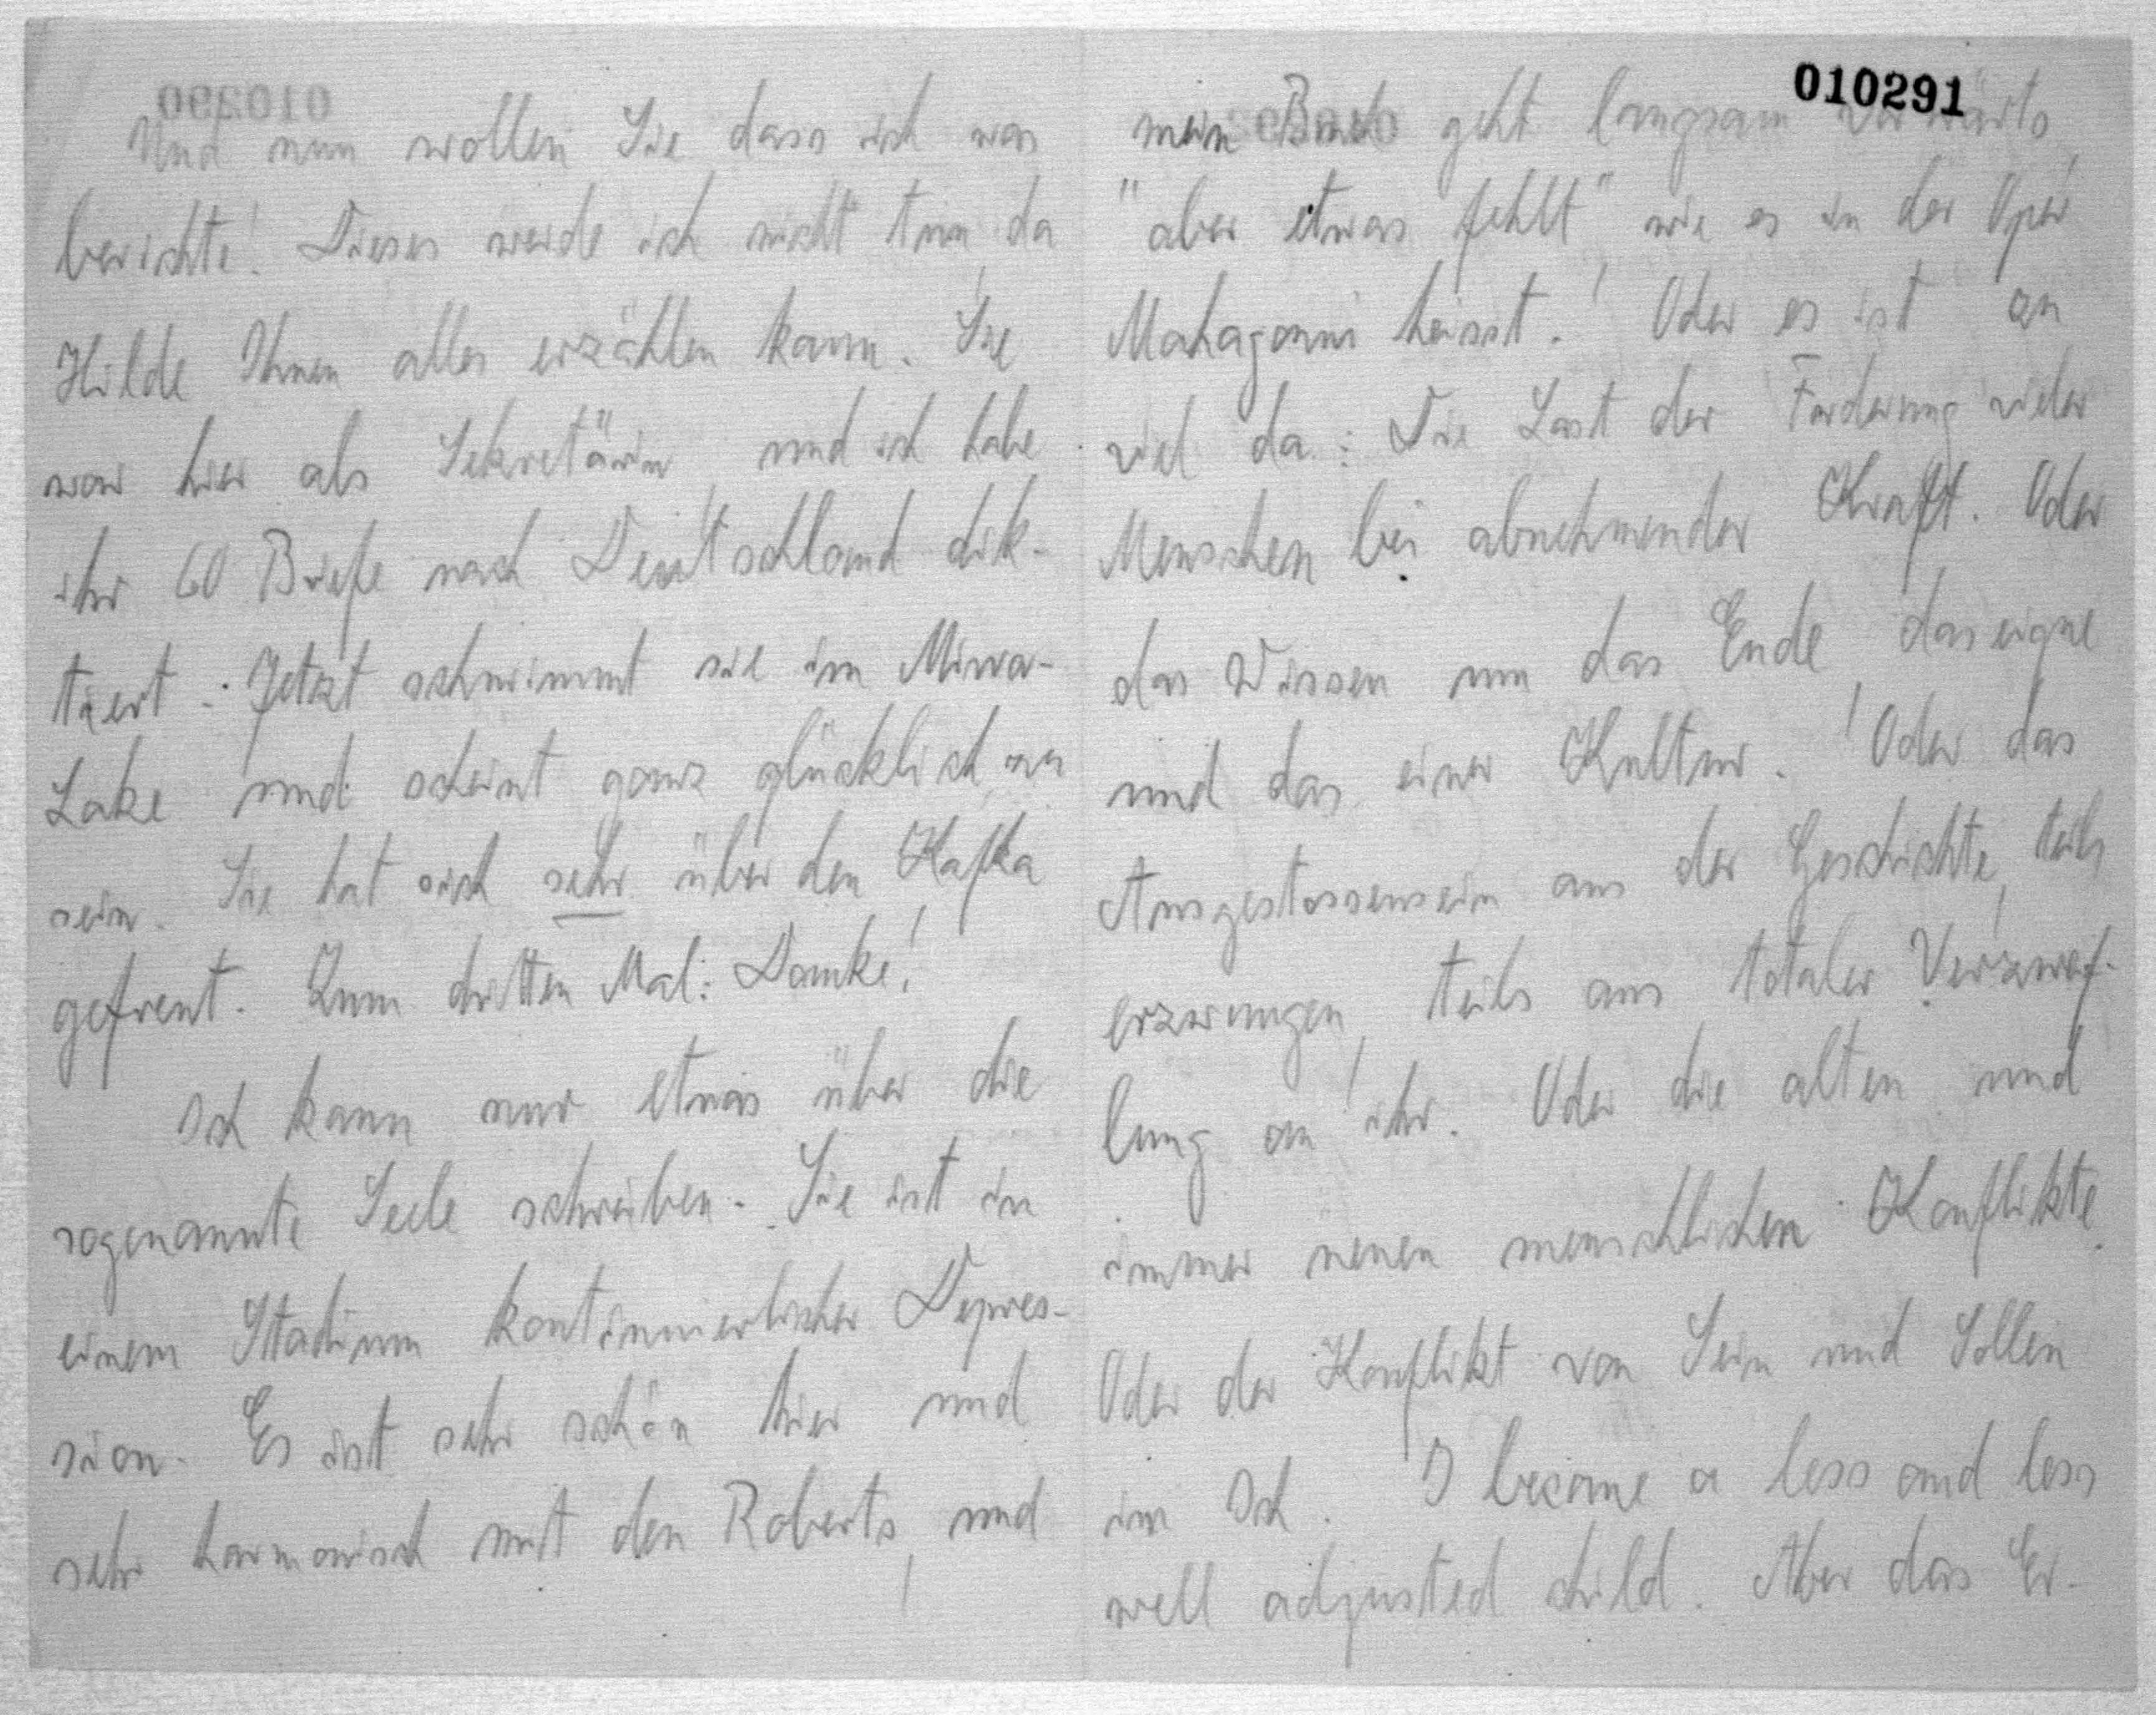 Und nun wollen Sie dass ich was
berichte! Dieses werde ich nicht tun, da
Hilde Ihnen alles erzählen kann. Sie
war hier als Sekretärin, und ich habe
ihr 60 Briefe nach Deutschland dik-
tiert. Jetzt schwimmt sie im Mirror-
Lake und scheint ganz glücklich zu
sein. Sie hat sich sehr über den Kafka
gefreut. Zum dritten Mal: Danke!
Ich kann nur etwas über die
sogenannte Seele schreiben. Sie ist in
einem Stadium kontinuierlicher Depres-
sion. Es ist sehr schön hier und
sehr harmonisch mit den Roberts, und
010291
mein Buch geht langsam vorwärts,
"aber etwas fehlt" wie es in der Oper
Mahagonni heisst! Oder es ist zu
viel da: Die Last der Forderung vieler
Menschen bei abnehmender Kraft. Oder
das Wissen um das Ende, das eigne
und das einer Kultur. Oder das
Ausgestossensein aus der Geschichte, teils
erzwungen, teils aus totaler Verzweif-
lung an ihr. Oder die alten und
immer neuen menschlichen Konflikte.
Oder der Konflikt von Sein und Sollen
im Ich. I became a less and less
well adjusted child. Aber das Er-